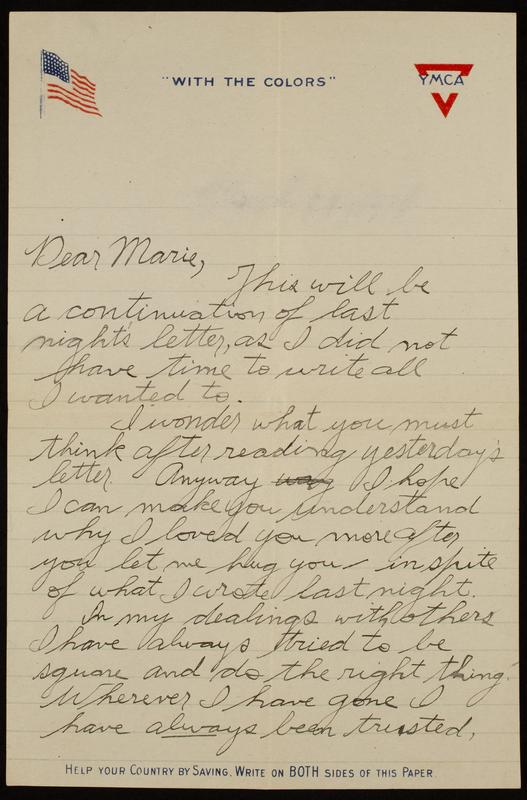 "WITH THE COLORS"
YMCA
Dear Marie,
This will be
a continuation of last
night's letter, as I did not
have time to write all
I wanted to.
I wonder what you must
think after reading yesterday's
letter. Anyway I hope
I can make you understand
why I loved you more after
you let me hug you - in spite
of what I wrote last night.
In my dealings with others
I have always tried to be
square and do the right thing.
Wherever I have gone I
have always been trusted,
HELP YOUR COUNTRY BY SAVING. WRITE ON BOTH SIDES OF THIS PAPER.